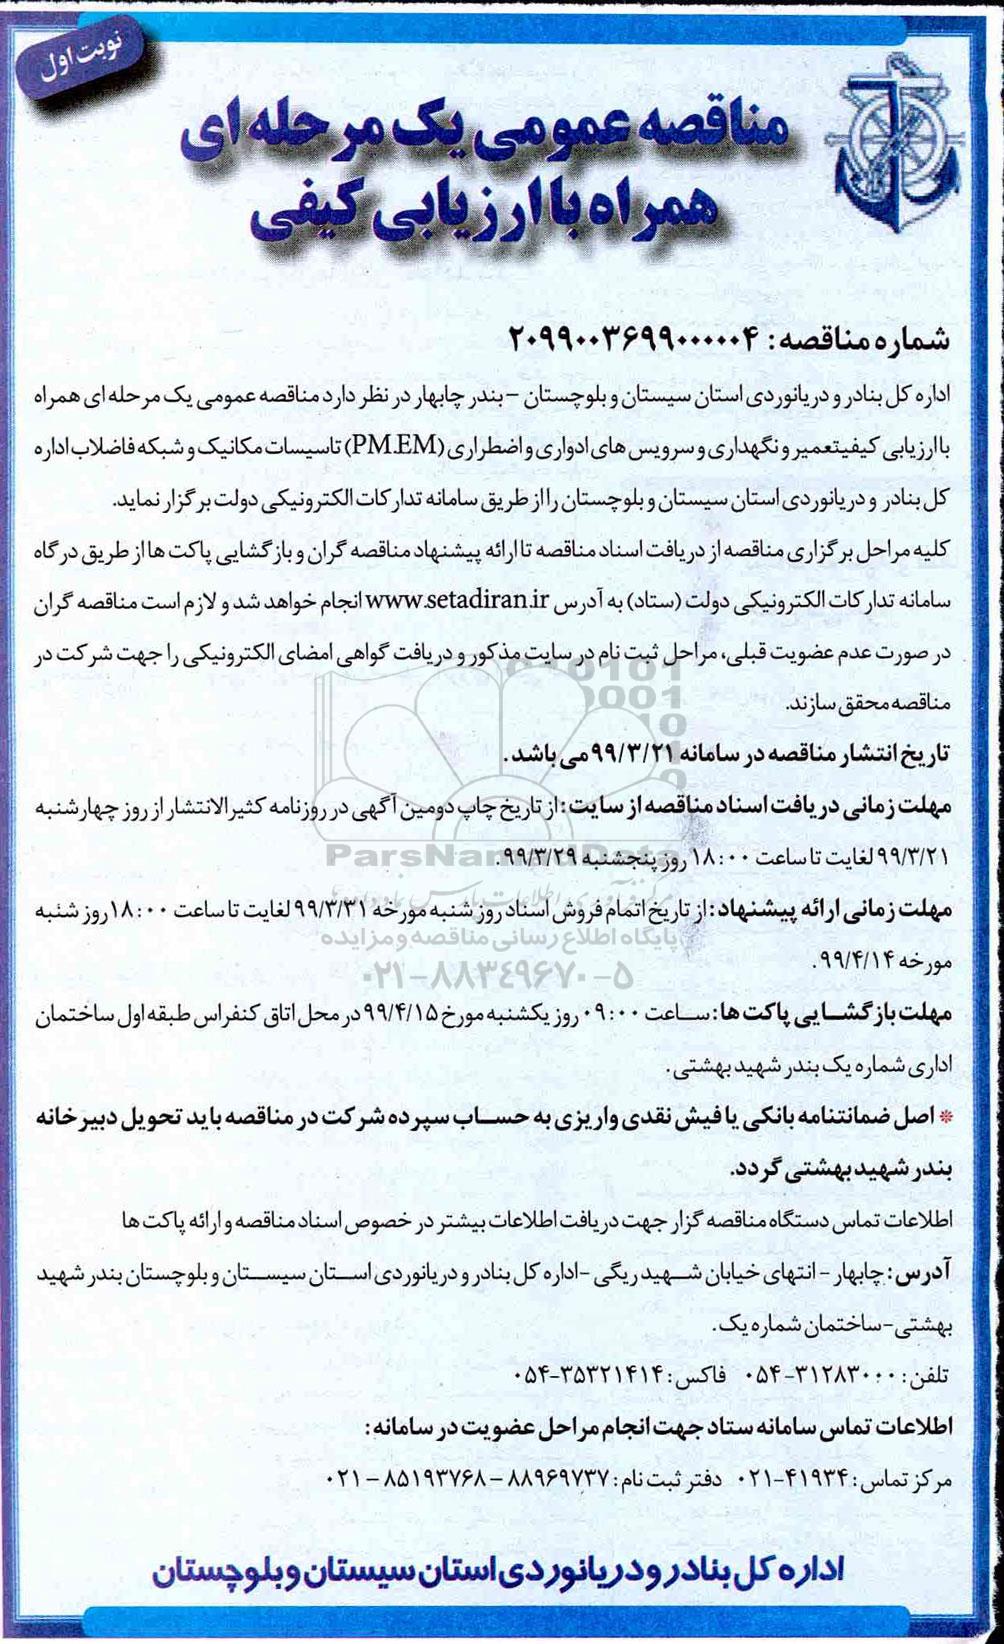 نوبت اول
مناقصه عمومی یک مرحله ای
همراه با ارزیابی کیفی
شماره مناقصه: ۲۰۹۹۰۰۳۶۹۹۰۰۰۰۰۴
اداره کل بنادر و دریانوردی استان سیستان و بلوچستان – بندر چابهار در نظر دارد مناقصه عمومی یک مرحله ای همراه
با ارزیابی کیفیتعمیر و نگهداری و سرویس های ادواری و اضطراری (PM.EM) تاسیسات مکانیک و شبکه فاضلاب اداره
کل بنادر و دریانوردی استان سیستان و بلوچستان را از طریق سامانه تدارکات الکترونیکی دولت برگزار نماید.
کلیه مراحل برگزاری مناقصه از دریافت اسناد مناقصه تا ارائه پیشنهاد مناقصه گران و بازگشایی پاکت ها از طریق درگاه
سامانه تدارکات الکترونیکی دولت (ستاد) به آدرس www.setadiran.ir انجام خواهد شد و لازم است مناقصه گران
در صورت عدم عضویت قبلی، مراحل ثبت نام در سایت مذکور و دریافت گواهی امضای الکترونیکی را جهت شرکت در
مناقصه محقق سازند.
تاریخ انتشار مناقصه در سامانه ۹۹/۳/۲۱ می باشد.
مهلت زمانی دریافت اسناد مناقصه از سایت: از تاریخ چاپ دومین آگهی در روزنامه کثیرالانتشار از روز چهارشنبه
۹۹/۳/۲۱ لغایت تا ساعت ۱۸:۰۰ روز پنجشنبه ۹۹/۳/۲۹.
ParsNamadData
مهلت زمانی ارائه پیشنهاد: از تاریخ اتمام فروش اسناد روز شنبه مورخه ۹۹/۳/۳۱ لغایت تا ساعت ۱۸:۰۰ روز شنبه
پایگاه اطلاع رسانی مناقصه و مزایده
مورخه ۹۹/۴/۱۴.
۰۲۱-۸۸۳۴۹۶۷۰-۵
مهلت بازگشایی پاکت ها: ساعت ۰۹:۰۰ روز یکشنبه مورخ ۹۹/۴/۱۵ در محل اتاق کنفراس طبقه اول ساختمان
اداری شماره یک بندر شهید بهشتی.
* اصل ضمانتنامه بانکی یا فیش نقدی واریزی به حساب سپرده شرکت در مناقصه باید تحویل دبیرخانه
بندر شهید بهشتی گردد.
اطلاعات تماس دستگاه مناقصه گزار جهت دریافت اطلاعات بیشتر در خصوص اسناد مناقصه و ارائه پاکت ها
آدرس: چابهار - انتهای خیابان شهید ریگی - اداره کل بنادر و دریانوردی استان سیستان و بلوچستان بندر شهید
بهشتی- ساختمان شماره یک.
تلفن: ۰۵۴-۳۱۲۸۳۰۰۰ فاکس: ۰۵۴-۳۵۳۲۱۴۱۴
اطلاعات تماس سامانه ستاد جهت انجام مراحل عضویت در سامانه:
مرکز تماس: ۰۲۱-۴۱۹۳۴ دفتر ثبت نام: ۸۸۹۶۹۷۳۷ – ۸۵۱۹۳۷۶۸ – ۰۲۱
اداره کل بنادر و دریانوردی استان سیستان و بلوچستان